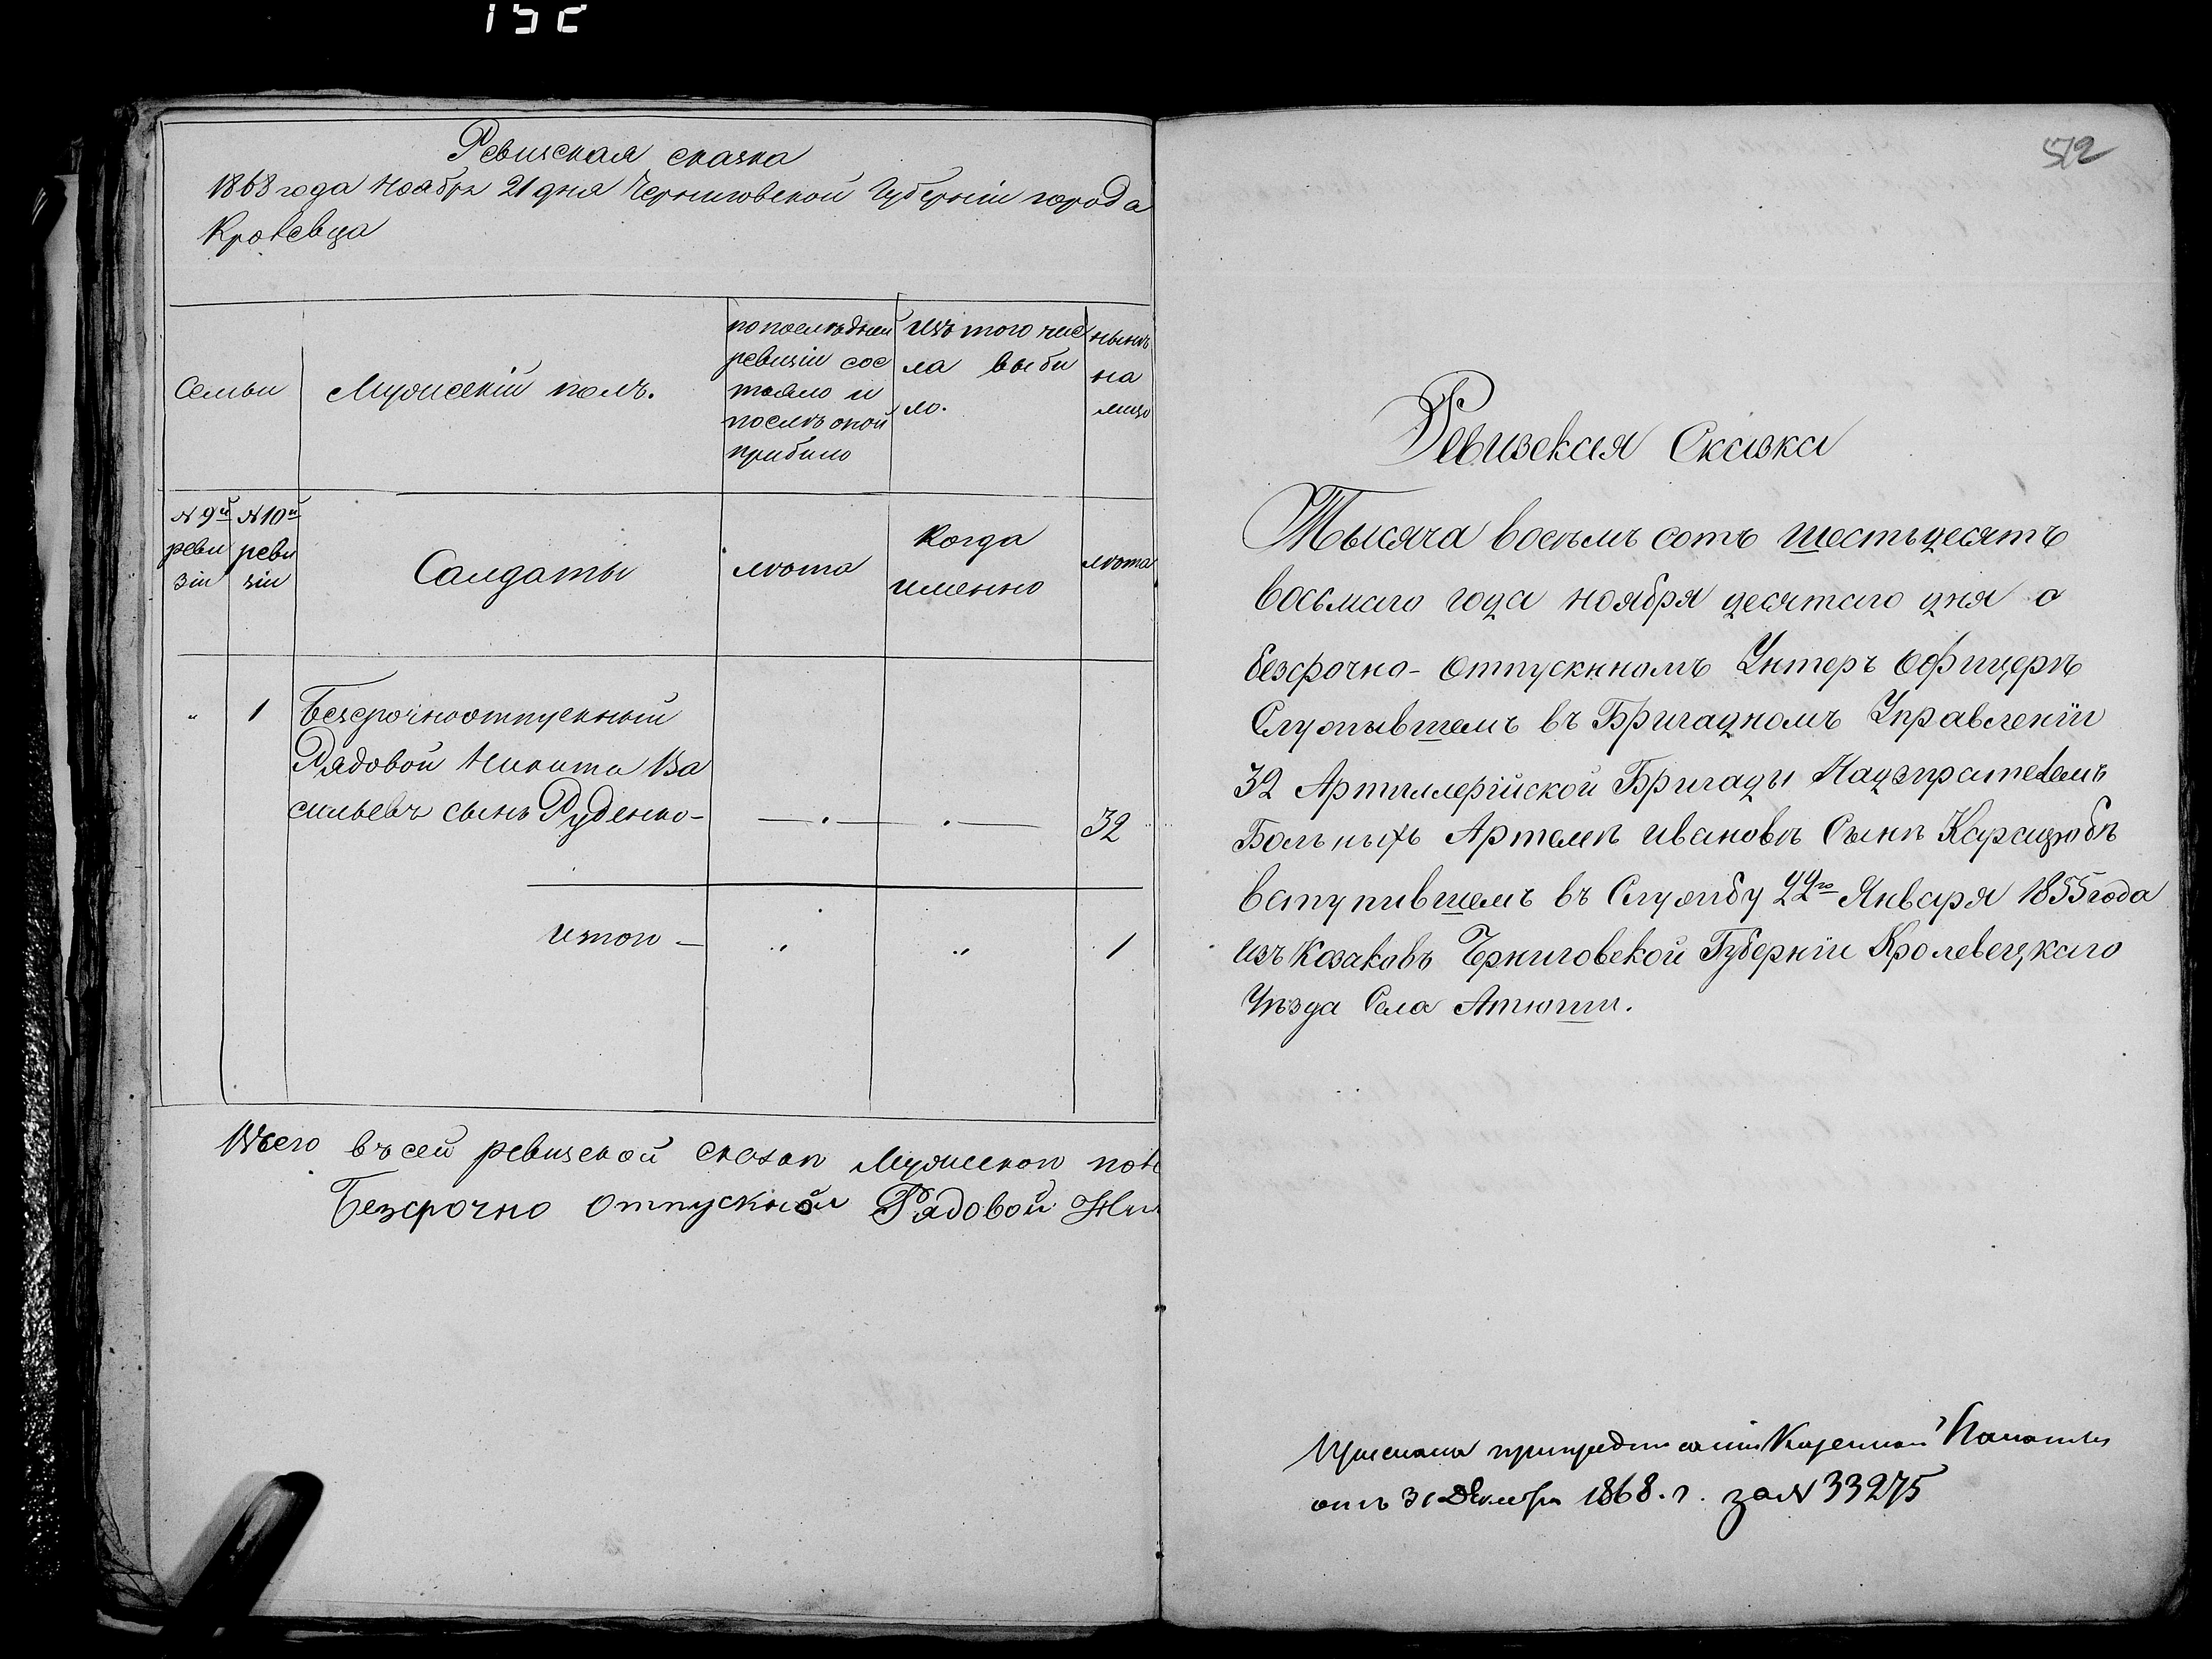 Ревиская сказка
1868 года Ноября 21 дня Черниговской Губерніи города
Кролевца
Семьи
Мужескій полъ.
по последней
ревизіи сос
тояло и
после оной
прибыло
изъ того чис
ла выбы
ло.
нынѣ
на
лицо
№ 9й
реви
зіи
№ 10й
реви
зіи
Салдаты
лѣта
когда
именно
лѣта
" 1 Безсрочноотпускный
Рядовой Никита Ва
сильевъ сынъ Руденко — . — . — 32
итого — " " 1
Всего въ сей ревизской сказки Мужеска пола
Безсрочно отпускной Рядовой Ни
512
Ревизская Сказка
Тысяча восемь сотъ шестьдесятъ
восьмаго года ноября десятаго дня о
безсрочно-отпускномъ Унтеръ Офицерѣ
Служившемъ въ Бригадномъ Управленіи
32 Артиллерійской Бригады Надзирателемъ
Больныхъ Артемѣ Ивановѣ Сынѣ Карацюбѣ
вступившемъ въ Службу 22го Января 1855 года
изъ Козаковъ Черниговской Губерніи Кролевецкаго
Уѣзда Села Атюши.
Прислана при предписаніи Казенной Палаты
отъ 31 Декабря 1868. г. за № 33275